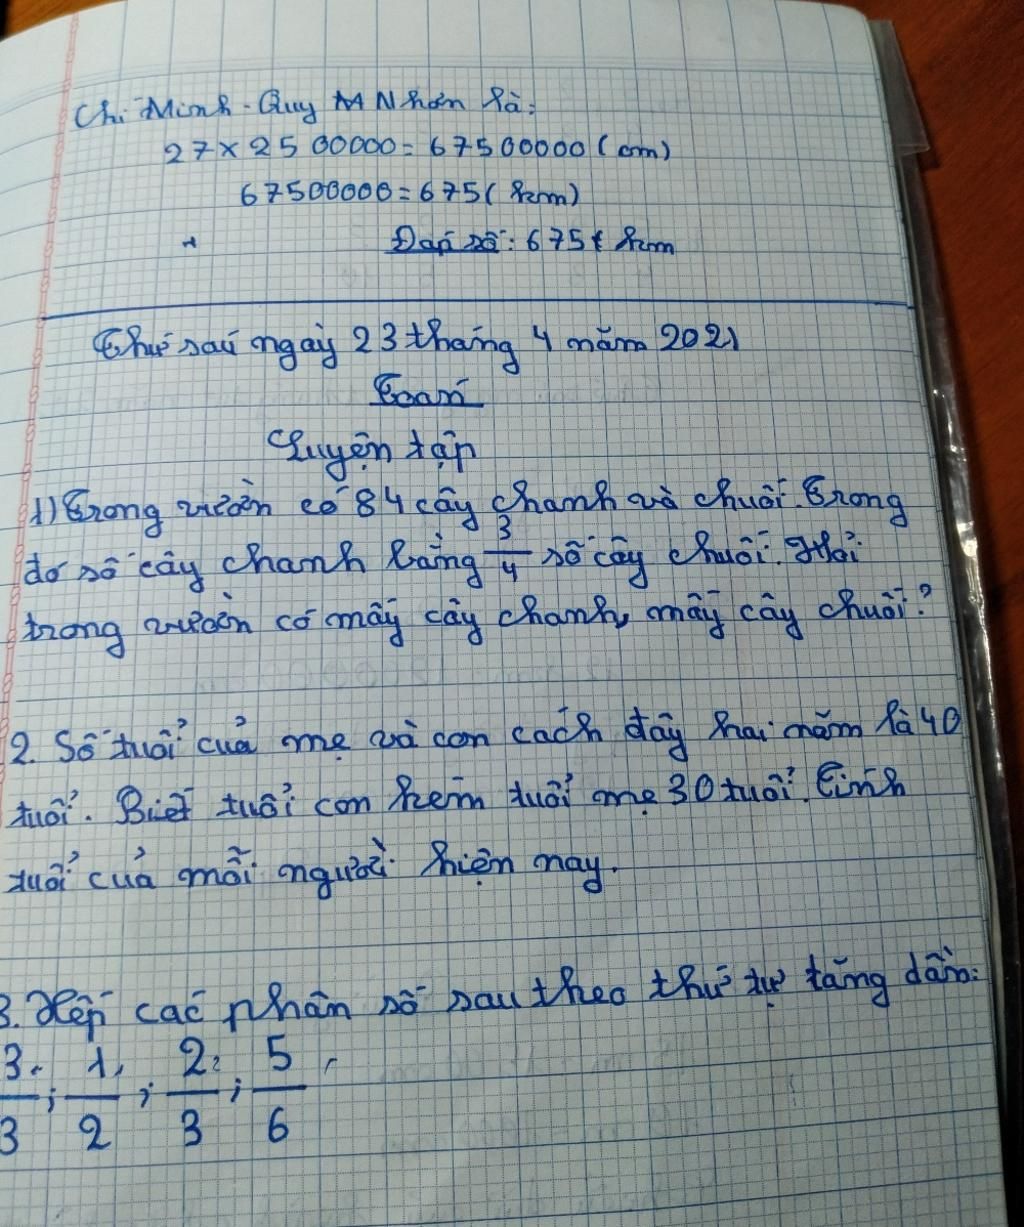 Chí Minh - Quy Nhơn là:
27 × 2500000 = 67500000 (cm)
67500000 = 675 (km)
Đáp số: 675 km
Thứ sáu ngày 23 tháng 4 năm 2021
Toán
Luyện tập
1) Trong vườn có 84 cây chanh và chuối. Trong
đó số cây chanh bằng 3/4 số cây chuối. Hỏi
trong vườn có mấy cây chanh, mấy cây chuối?
2. Số tuổi của mẹ và con cách đây hai năm là 40
tuổi. Biết tuổi con kém tuổi mẹ 30 tuổi. Tính
tuổi của mỗi người hiện nay.
3. Xếp các phân số sau theo thứ tự tăng dần:
3/3 ; 1/2 ; 2/3 ; 5/6